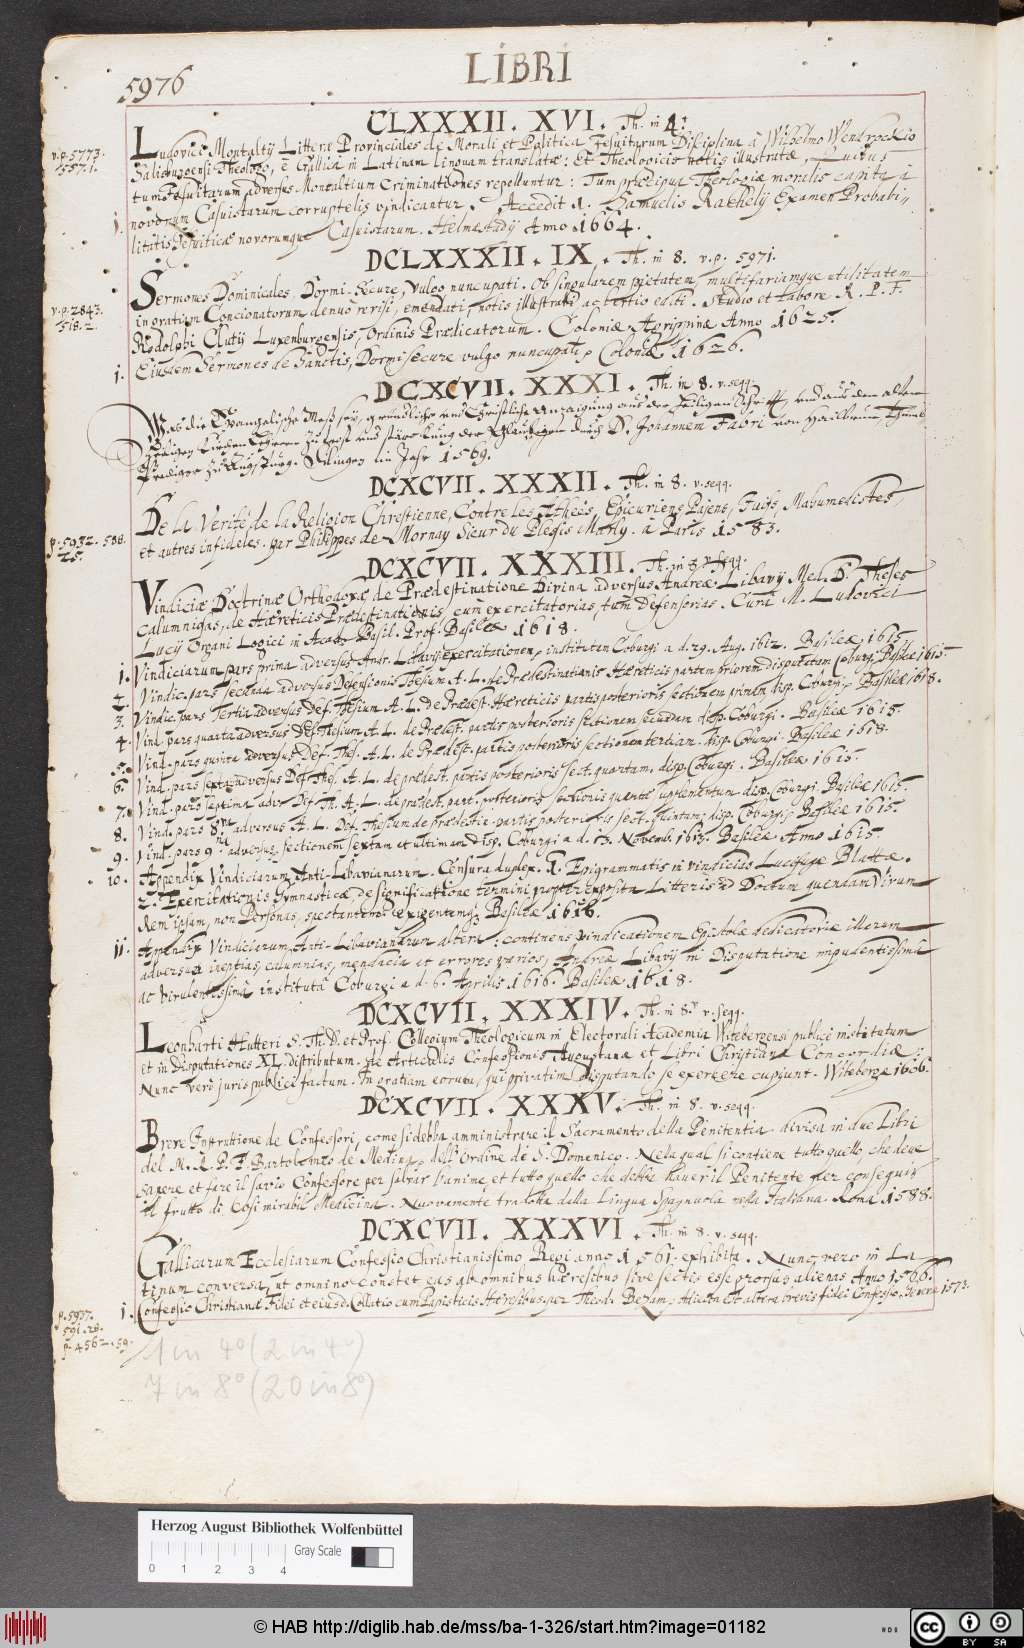 5976
LIBRI
CLXXXII. XVI. Th. in 4.
v. p. 5773.
557.1.
Ludovici Montaltij Litteræ Provinciales de Morali et Politica Jesuitarum Disciplina à Wilhelmo Wendrockio
Salisburgensi Theologo, è Gallica in Latinam linguam translatæ: Et Theologicis notis illustratæ, quibus
tum Jesuitarum adversus Montaltium Criminationes repelluntur: Tum præcipua Theologiæ moralis capita a
novorum Casuistarum corruptelis vindicantur. Accedit 1. Samuelis Rachelij Examen Probabi-
1.
litatis Jesuiticæ novorumque Casuistarum. Helmestadij Anno 1664.
DCLXXXII. IX. Th. in 8. v. p. 5971.
Sermones Dominicales, Dormi-Secure, vulgo nuncupati. Ob singularem pietatem, multifariamque utilitatem
v. p. 2843.
518.2.
in gratiam Concionatorum denuo revisi, emendati, notis illustrati ac tertio editi. Studio et Labore R. P. F.
Rodolphi Clutij Luxenburgensis, Ordinis Prædicatorum. Coloniæ Agrippinæ Anno 1625.
1. Eiusdem Sermones de Sanctis, Dormi secure vulgo nuncupati, Coloniæ 1626.
DCXCVII. XXXI. Th. in 8. v. seqq.
Was die Evangelische Meß sey, gründliche und Christliche anzaigung aus der Heiligen Schrifft, und aus den alten
Heiligen Kirchen Lehrern zu trost und stärckung der Glaubigen durch D. Johannem Fabri von Heilbrunn Thumb
Prediger zu Augspurg. Dilingen im Jahr 1569.
DCXCVII. XXXII. Th. in 8. v. seqq.
De la Verité de la Religion Chrestienne, Contre les Athées, Epicuriens, Payens, Juifs, Mahumedistes,
p. 5932. 588.
25.
et autres infideles. par Philippes de Mornay Sieur du Plessis Marly. à Paris 1583.
DCXCVII. XXXIII. Th. in 8. v. seqq.
Vindiciæ Doctrinæ Orthodoxæ de Prædestinatione Divina adversus Andreæ Libavij Med. D. Theses
Calumnigas, de Hæreticis Prædestinationis, cum exercitatorias, tum Defensorias. Cura M. Ludovici
Lucij Organi Logici in Acad. Basil. Prof. Basileæ 1618.
1. Vindiciarum pars prima adversus Andr. Libavij exercitationem, institutam Coburgi a d. 29. Aug. 1612. Basileæ 1615.
2. Vindic. pars secunda adversus Defensionis Thesium A. L. de Prædestinationis Hæreticis partem priorem disputatam Coburgi, Basileæ 1615.
3. Vindic. pars Tertia adversus Def. Thesium A. L. de Prædest. Hæreticis partis posterioris sectionem primam disp. Coburgi, Basileæ 1618.
4. Vind. pars quarta adversus Def. Thesium A. L. de Prædest. partis posterioris sectionem secundam disp. Coburgi. Basileæ 1615.
5. Vind. pars quinta adversus Def. Thes. A. L. de Prædest. partis posterioris sectionem tertiam. disp. Coburgi. Basileæ 1618.
6. Vind. pars sexta adversus Def. Thes. A. L. de prædest. partis posterioris sect. quartam. disp. Coburgi. Basileæ 1615.
7. Vind. pars septima adv. Def. Th. A. L. de prædest. part. posterioris sectionis quartæ supplementum disp. Coburgi. Basileæ 1615.
8. Vind. pars 8va adversus A. L. Def. Thesium de prædestin. partis posterioris sect. quintam, disp. Coburgi, Basileæ 1615.
9. Vind. pars 9na adversus sectionem sextam et ultimam disp. Coburgi a d. 13. Novemb. 1613. Basileæ Anno 1615.
10. Appendix Vindiciarum Anti-Libavianarum. Censura duplex. 1. Epigrammatis in vindicias Lucifugæ Blattæ.
2. Exercitationis Gymnasticæ, de significatione termini propter exposita Litteris ad Doctum quendam Virum
Rem ipsam, non Personas, spectantem et exigentemq; Basileæ 1616.
11. Appendix Vindiciarum Anti-Libavianarum altera: continens vindicationem Epistolæ dedicatoriæ illarum
adversus ineptias, calumnias, mendacia et errores varios, Andreæ Libavij in Disputatione impudentissima
ac virulentissima instituta Coburgi a d. 6. Aprilis 1616. Basileæ 1618.
DCXCVII. XXXIV. Th. in 8. v. seqq.
Leonharti Hutteri S. Th. D. et Prof. Collegium Theologicum in Electorali Academia Witebergensi publice institutum
et in Disputationes XL. distributum. de Articulis Confessionis Augustanæ et Libri Christianæ Concordiæ:
Nunc verò juris publici factum. In gratiam eorum, qui privatim disputando se exercere cupiunt. Witebergæ 1606.
DCXCVII. XXXV. Th. in 8. v. seqq.
Breve Instruttione de Confessori, come si debba amministrare il Sacramento della Penitentia. divisa in due Libri
del M. R. P. F. Bartolomeo de Medina, dell' Ordine de S. Domenico. Nela qual si contiene tutto quello, che deve
sapere et fare il savio Confessore per salvar l'anime, et tutto quello che debbe haver il Penitente per conseguir
il frutto di Cosi mirabil Medicina. Nuovamente tradotta dalla Lingua Spagnuola nella Italiana. Roma 1588.
DCXCVII. XXXVI. Th. in 8. v. seqq.
Gallicarum Ecclesiarum Confessio Christianissimo Regi anno 1561. exhibita. Nunc vero in La-
tinum conversa, ut omnino constet eas ab omnibus hæresibus sive sectis esse prorsus alienas Anno 1566.
p. 5937.
591.28.
p. 4562.59.
1. Confessio Christianæ Fidei et eiusd. Collatio cum Papisticis Hæresibus per Theod. Bezam, Adiecta est altera brevis fidei Confessio. Genevæ 1573.
1 in 4° (2 in 4°)
7 in 8° (20 in 8°)
Herzog August Bibliothek Wolfenbüttel
Gray Scale
0 1 2 3 4
© HAB http://diglib.hab.de/mss/ba-1-326/start.htm?image=01182
cc BY SA